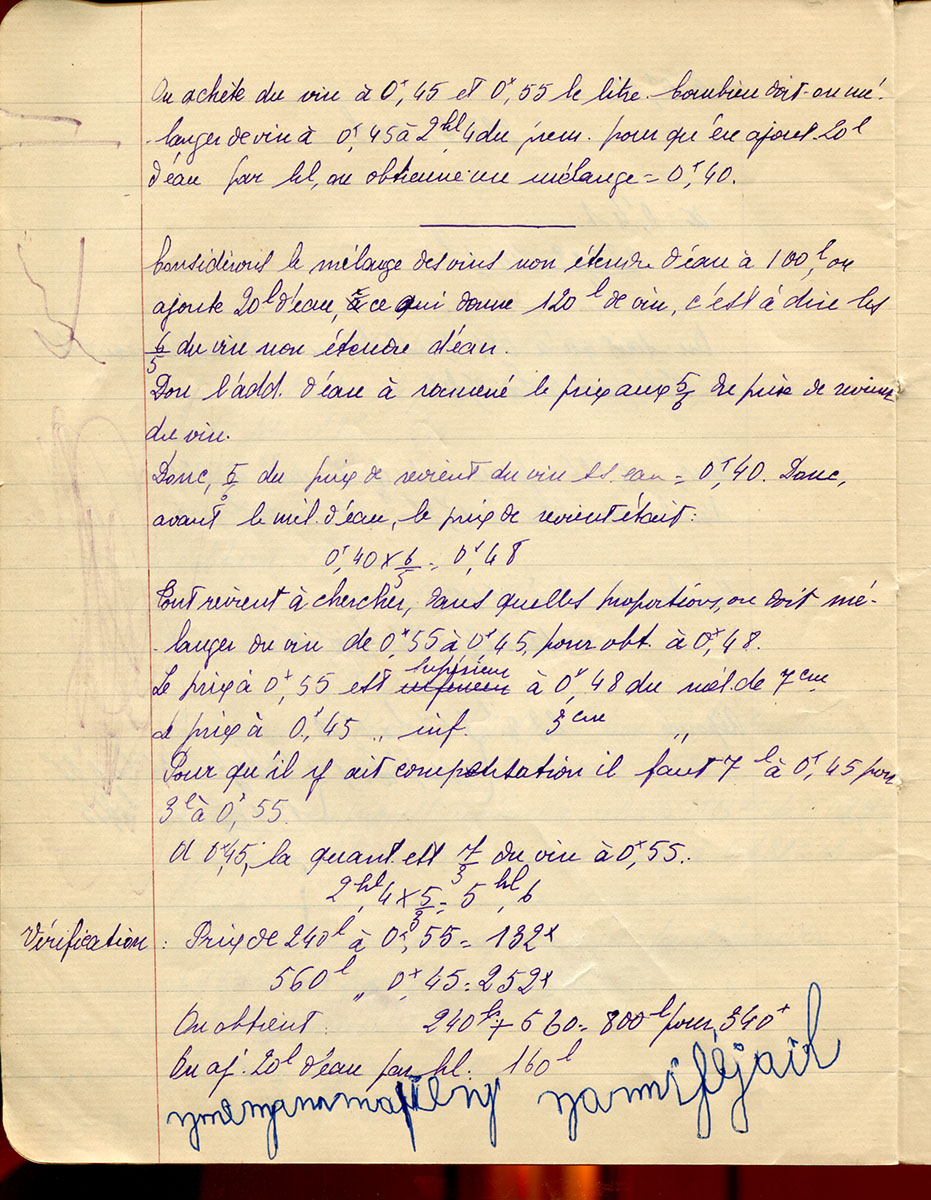 On achète du vin à 0ᶠ,45 et 0ᶠ,55 le litre. Combien doit-on mé-
-langer de vin à 0ᶠ,45 à 2ʰˡ,4 du prem. pour qu'en ajout. 20ˡ
d'eau par hl, on obtienne un mélange = 0ᶠ,40.
Considérons le mélange des vins non étendre d'eau à 100ˡ, on
ajoute 20ˡ d'eau, ce qui donne 120ˡ de vin, c'est à dire les
6/5 du vin non étendre d'eau.
Don l'add. d'eau à ramené le prix aux 5/6 du prix de revient
du vin.
Donc, 5/6 du prix de revient du vin eau = 0ᶠ,40. Donc,
avant le mél. d'eau, le prix de revient était:
0ᶠ,40 × 6/5 = 0ᶠ,48
Tout revient à chercher, dans quelles proportions, on doit mé-
-langer du vin de 0ᶠ,55 à 0ᶠ,45, pour obt. à 0ᶠ,48.
Le prix à 0ᶠ,55 est supérieur à 0ᶠ,48 du mél. de 7ᶜᵐ
Le prix à 0ᶠ,45 ,, inf. ,, 3ᶜᵐ
Pour qu'il y ait compensation il faut 7ˡ à 0ᶠ,45 pour
3ˡ à 0ᶠ,55.
A 0ᶠ,45, la quant. est 7/3 du vin à 0ᶠ,55.
2ʰˡ,4 × 5/3 = 5ʰˡ,6
Vérification : Prix de 240ˡ à 0ᶠ,55 = 132ᶠ
560ˡ ,, 0ᶠ,45 = 252ᶠ
On obtient : 240ˡ + 560 = 800ˡ pour 340ᶠ
On aj. 20ˡ d'eau par hl: 160ˡ